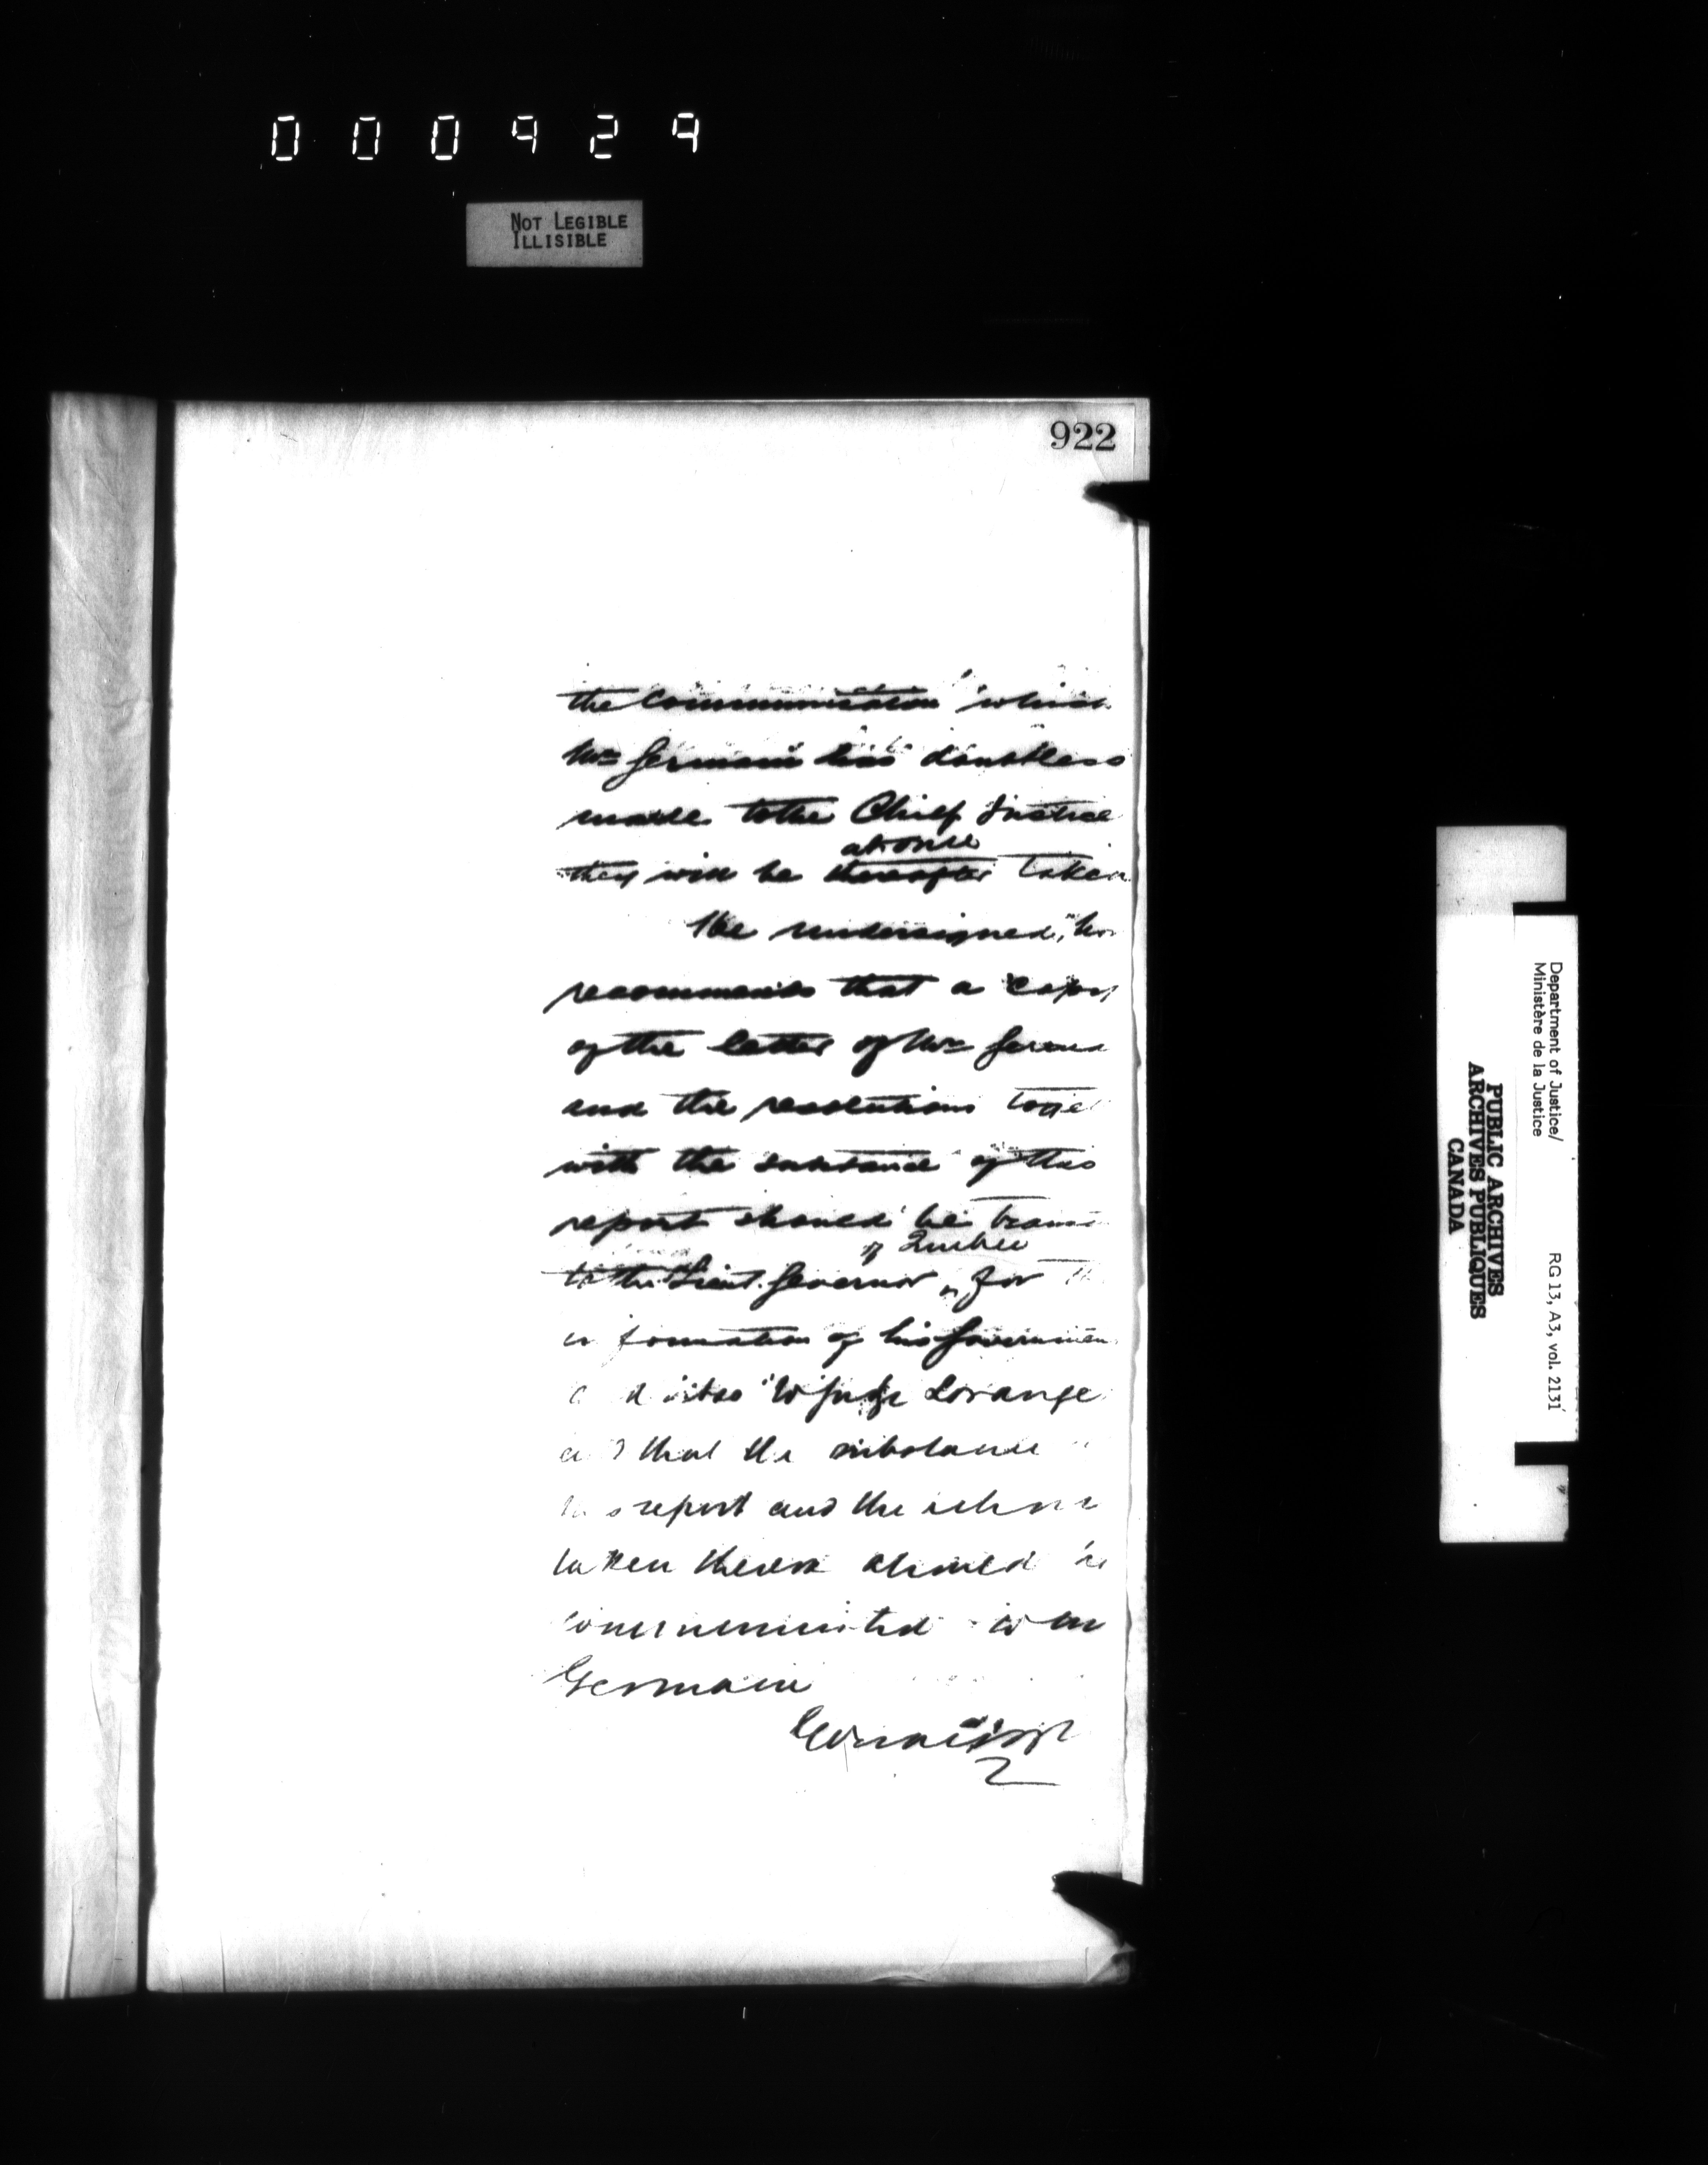 000929
NOT LEGIBLE
ILLISIBLE
922
the communication which
Mr Germain has doubtless
made to the Chief Justice
at once
they will be thereafter taken
The undersigned,
recommends that a copy
of the letter of Mr
and the resolutions toget
with the substance of this
report should be trans
of Quebec
to the Lieut. Governor ^ for
information of his Governmen
also to Judge Loranger
that the substance
report and the
taken thereon should be
communicated to Mr
Germain
Department of Justice/
Ministère de la Justice
RG 13, A3, vol. 2131
PUBLIC ARCHIVES
ARCHIVES PUBLIQUES
CANADA